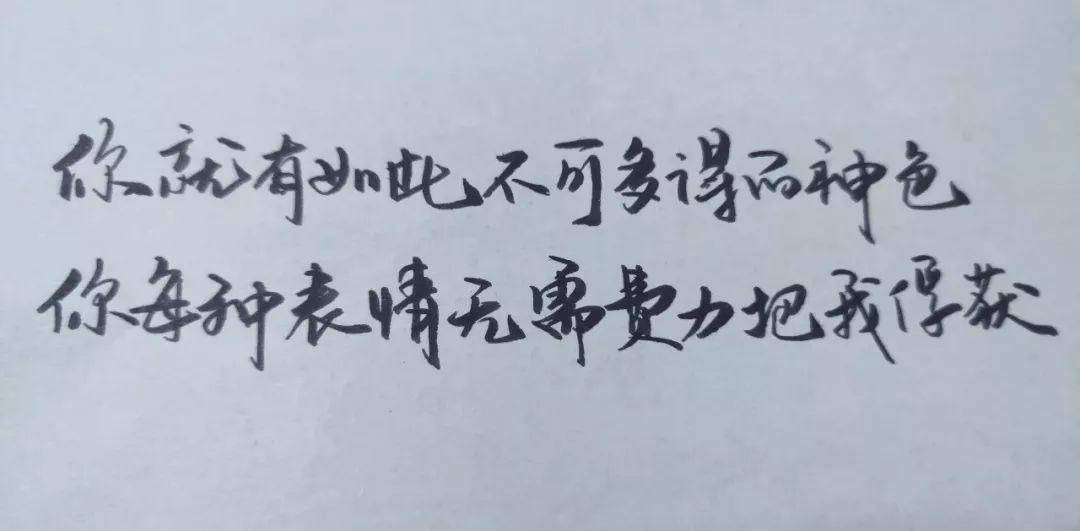 你就有如此不可多得而神色
你每种表情无需费力把我俘获